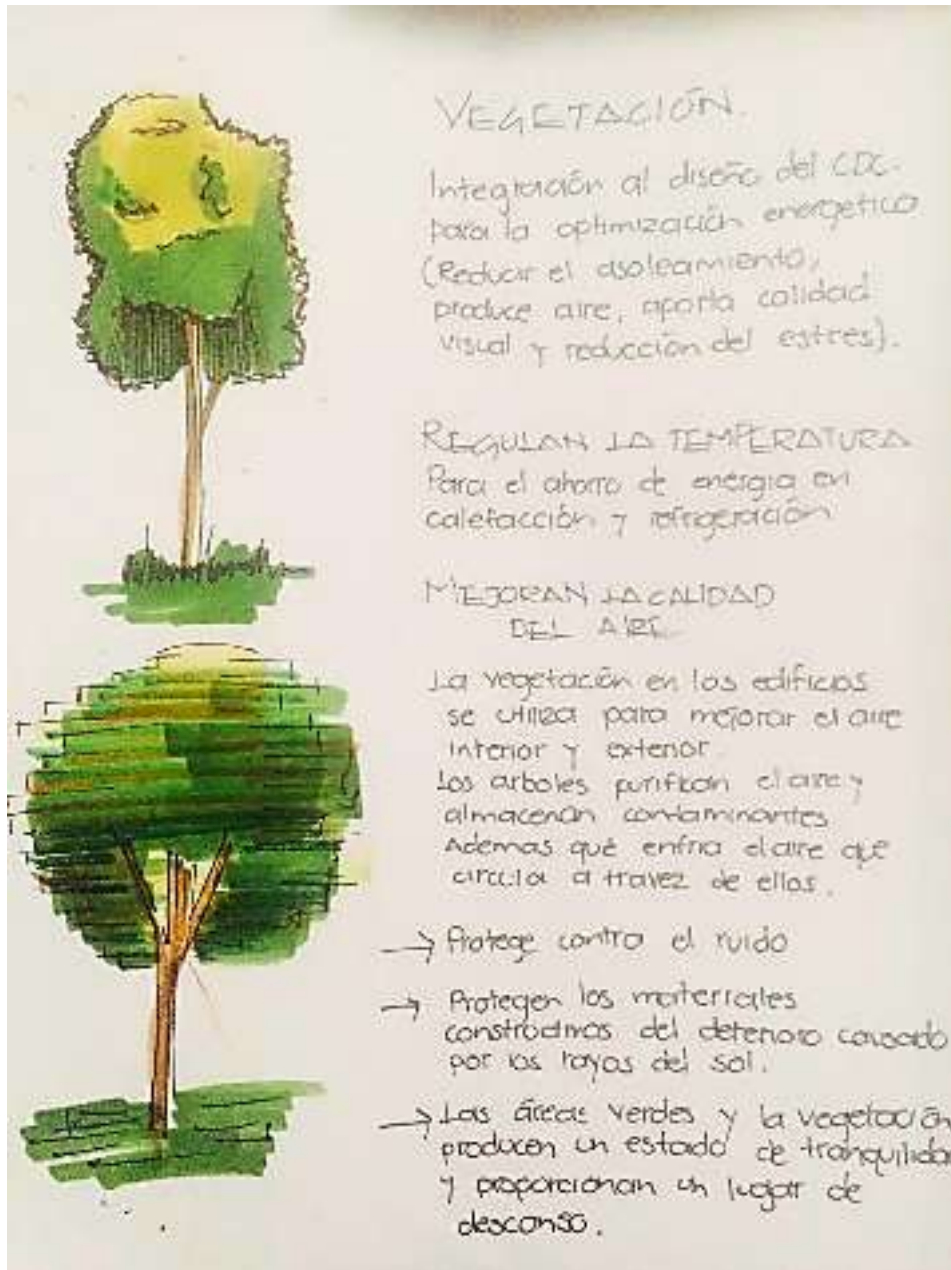 VEGETACIÓN.
Integración al diseño del CDC.
para la optimización energetica
(Reducir el asoleamiento,
produce aire, aporta calidad
visual y reducción del estres).
REGULAN LA TEMPERATURA
Para el ahorro de energia en
calefacción y refrigeración
MEJORAN LA CALIDAD
DEL AIRE
La vegetación en los edificios
se utiliza para mejorar el aire
interior y exterior.
Los arboles purifican el aire y
almacenan contaminantes
Ademas qué enfria el aire que
circula a travez de ellos.
→ Protege contra el ruido
→ Protegen los materiales
constructivos del deterioro causado
por los rayos del sol.
→ Las áreas verdes y la vegetación
producen un estado de tranquilidad
y proporcionan un lugar de
descanso.